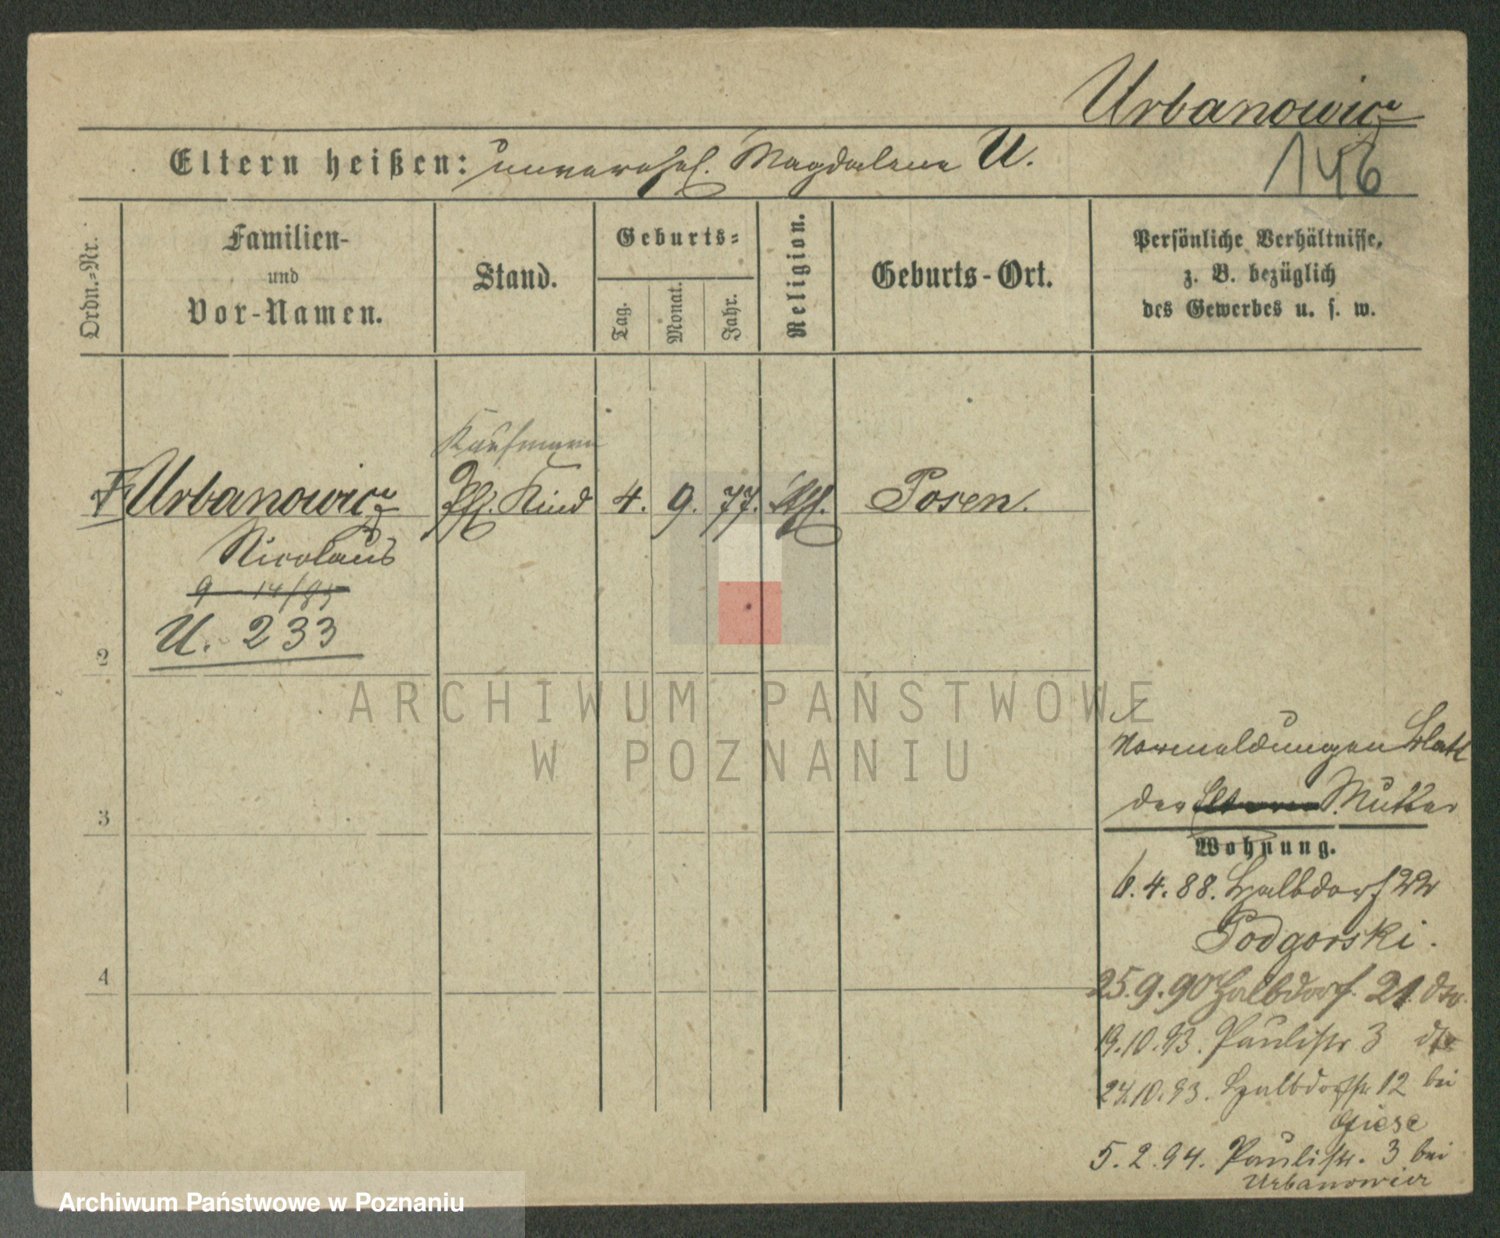 Urbanowicz
146
Eltern heißen: unverehel. Magdalena U.
Ordn.-Nr.
Familien-
und
Vor-Namen.
Stand.
Geburts-
Tag.
Monat.
Jahr.
Religion.
Geburts-Ort.
Persönliche Verhältnisse,
z. B. bezüglich
des Gewerbes u. s. w.
Kaufmann
Urbanowicz Kind 4. 9. 77. Kth. Posen.
Nicolaus
9 14/85
U. 233
2
3
4
Vormeldungen Blatt
der Eltern Mutter
Wohnung.
6.4.88. Halbdorf 22
Podgorski.
25.9.90 Halbdorf 21. dto.
19.10.93. Paulistr 3
24.10.93. Halbdorfstr. 12 bei
Giese
5.2.94. Paulistr. 3 bei
Urbanowicz
ARCHIWUM PAŃSTWOWE
W POZNANIU
Archiwum Państwowe w Poznaniu